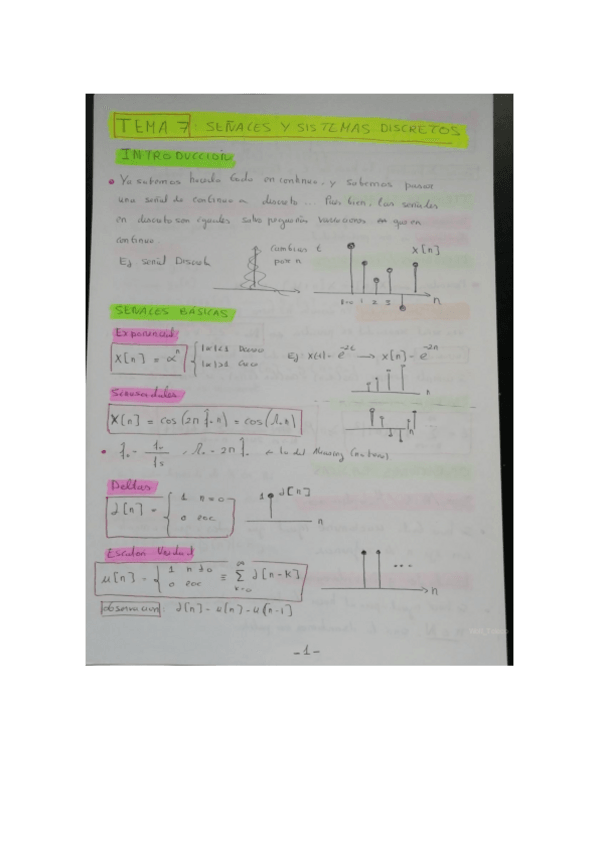 TEMA 7: SEÑALES Y SISTEMAS DISCRETOS
INTRODUCCIÓN
• Ya sabemos hacerlo todo en continuo, y sabemos pasar
una señal de continuo a discreto... Pues bien, las señales
en discreto son iguales salvo pequeñas variaciones que en
continuo.
Ej. señal Discreta
cambias t
por n
x[n]
1 2 3
n
SEÑALES BÁSICAS
Exponencial
x[n] = α^n { |α|<1 Decrece
|α|>1 Crece
Ej: x(t) = e^-2t → x[n] = e^-2n
n
Senusoidales
x[n] = cos(2π f₀ n) = cos(Ω₀ n)
n
• f₀ = f₀/fs , Ω₀ = 2π f₀ ← lo del Aliasing
Deltas
δ[n] = { 1 n=0
0 
1 δ[n]
n
Escalon Unidad
u[n] = { 1 n≥0
0 
≡ ∞ Σ k=0 δ[n-k]
...
n
observacion: δ[n] = u[n] - u[n-1]
-1-